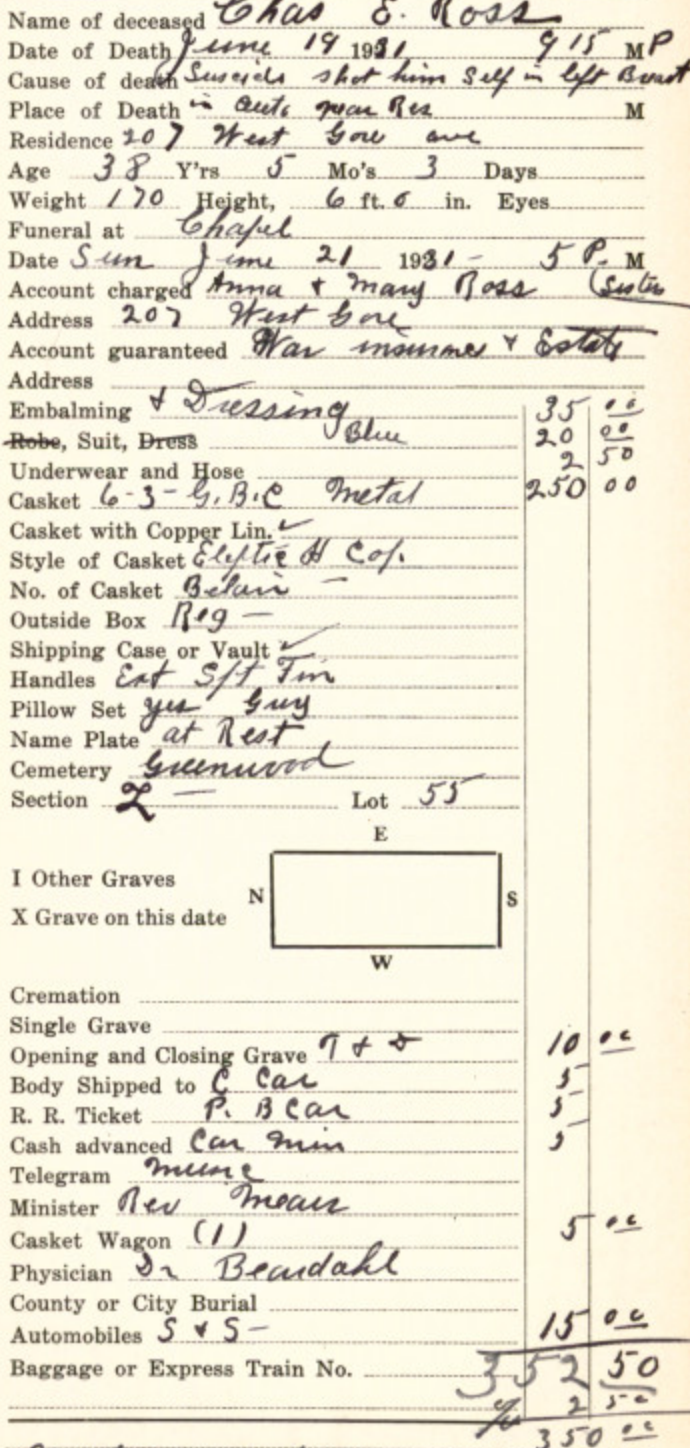 Name of deceased Chas E. Ross
Date of Death June 19 1931 9 15 M P
Cause of death Suscide shot him self in left Breast
Place of Death in auto near Res M
Residence 207 West Gore ave
Age 38 Y'rs 5 Mo's 3 Days
Weight 170 Height, 6 ft. 0 in. Eyes
Funeral at Chapel
Date Sun June 21 1931 - 5 P. M
Account charged Anna & Mary Ross (Sister
Address 207 West Gore
Account guaranteed War insurance & Estate
Address
Embalming & Dressing 35 00
Robe, Suit, Dress Blue 20 00
Underwear and Hose 2 50
Casket 6-3- G.B.C Metal 250 00
Casket with Copper Lin. ✓
Style of Casket H Cop.
No. of Casket
Outside Box Reg -
Shipping Case or Vault ✓
Handles Ext
Pillow Set yes Grey
Name Plate at Rest
Cemetery Greenwood
Section Z - Lot 55
E
I Other Graves
N S
X Grave on this date
W
Cremation
Single Grave
Opening and Closing Grave T & D 10 00
Body Shipped to C Car 5
R. R. Ticket P. B Car 5
Cash advanced Car Min 5
Telegram Music
Minister Rev Mears
Casket Wagon (1) 5 00
Physician Dr Beardahl
County or City Burial
Automobiles S & S - 15 00
Baggage or Express Train No. 352 50
2 50
350 00